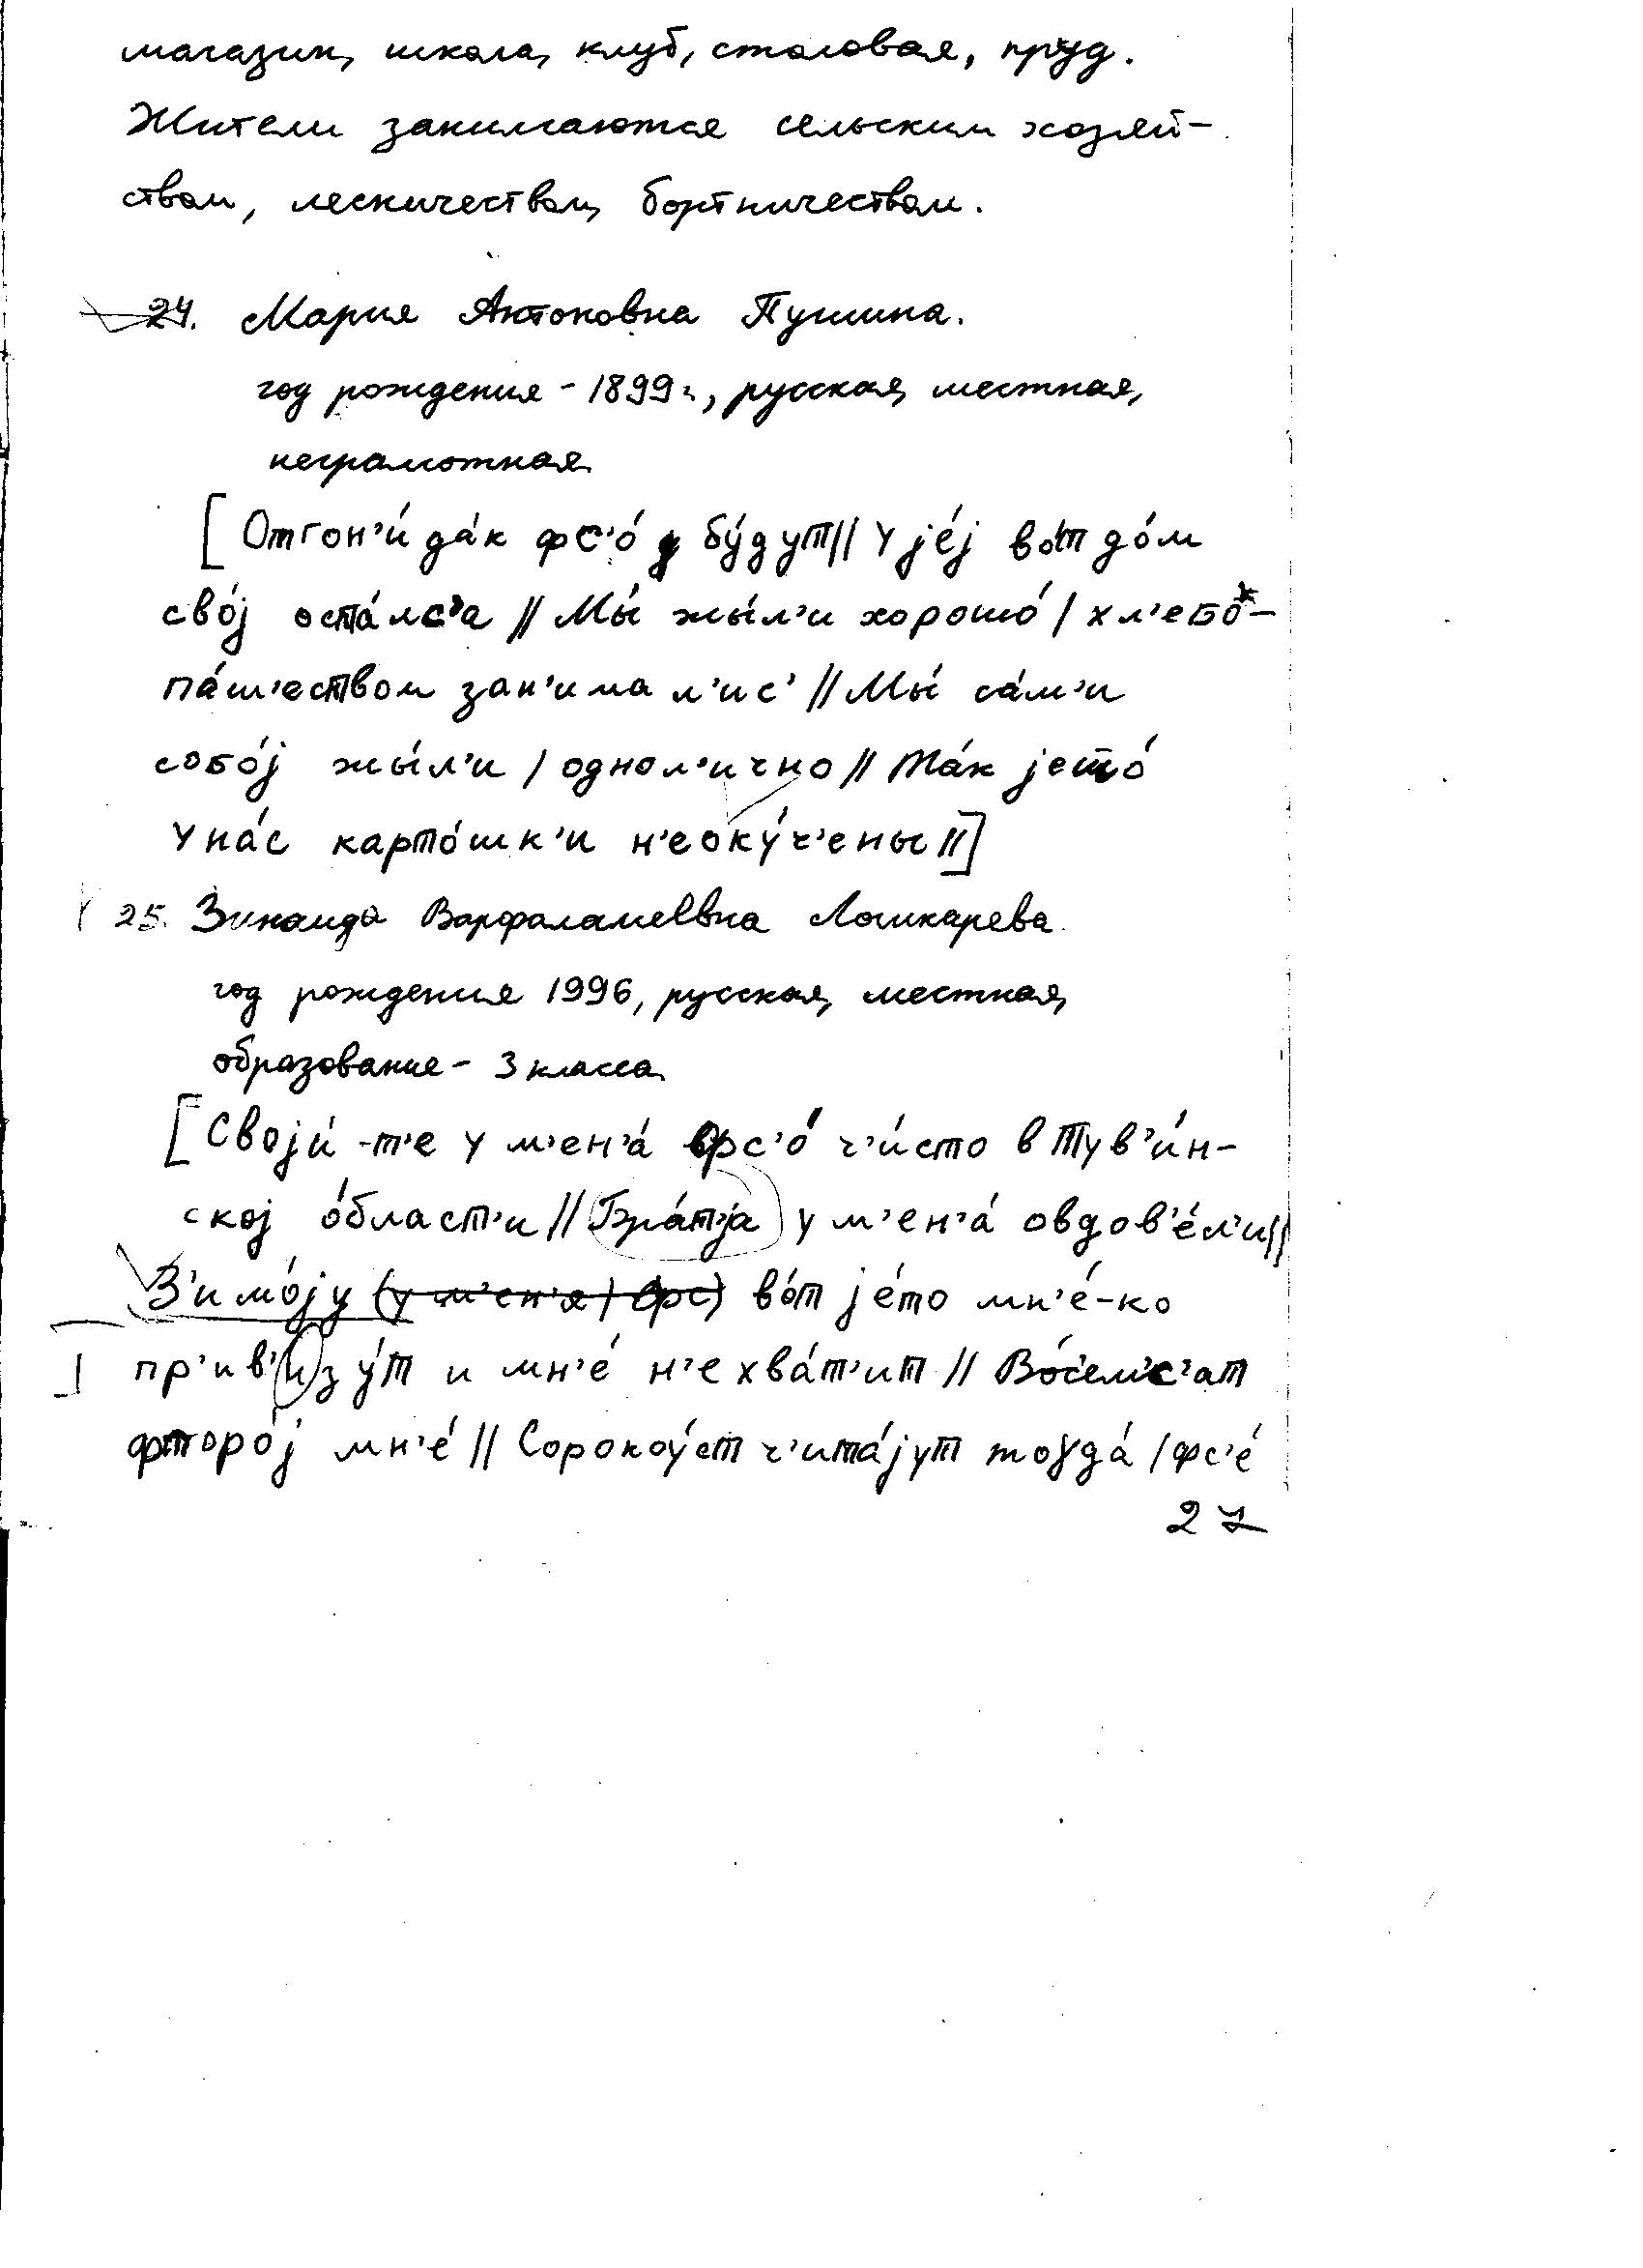 магазин, школа, клуб, столовая, пруд.
Жители занимаются сельским хозяй-
ством, лесничеством, бортничеством.
24. Мария Антоновна Пушина.
год рождения - 1899 г., русская, местная,
неграмотная.
[Отгон'и́ да́к фс'о́ бу́дут// У је́ј во́т до́м
сво́ј оста́лс'а // Мы́ жы́л'и хорошо́ / хл'ебо-
па́ш'еством зан'имал'ис' // Мы́ са́м'и
собо́ј жы́л'и / однол'ично // Та́к јето́
У на́с карто́шк'и н'еоку́ч'ены //]
25. Зинаида Варфаламеевна Лошкарева.
год рождения 1996, русская, местная,
образование - 3 класса.
[Своји́-т'е у м'ен'а́ фс'о́ ч'и́сто в Тув'и́н-
ској о́бласт'и // Бра́т'ја у м'ен'а́ овдов'е́л'и //
З'имо́ју (у м'ен'я / фс) во́т је́то мн'е́-ко
пр'ив'изу́т и мн'е́ н'е хва́т'ит // Во́с'ем'с'ат
фторо́ј мн'е́ // Сорокоу́ст ч'ита́јут тоγда́ / фс'е́
27